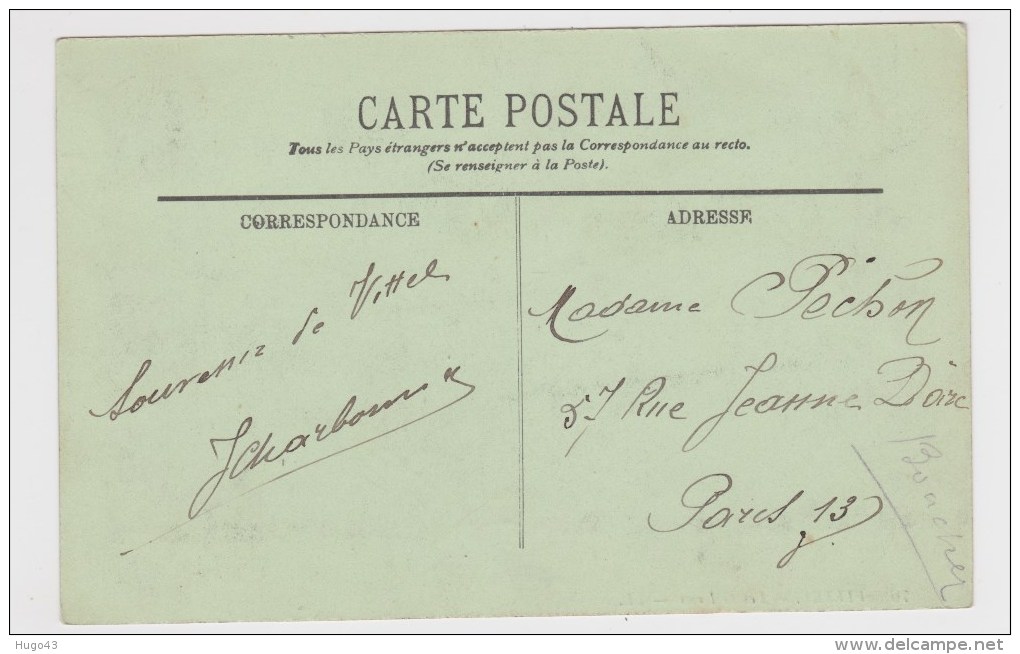 CARTE POSTALE
Tous les Pays étrangers n'acceptent pas la Correspondance au recto.
(Se renseigner à la Poste).
CORRESPONDANCE
Souvenir de Vittel
ADRESSE
Madame Pechon
57 Rue Jeanne Darc
Paris 13
Boucher
Hugo43
www.delcampe.net